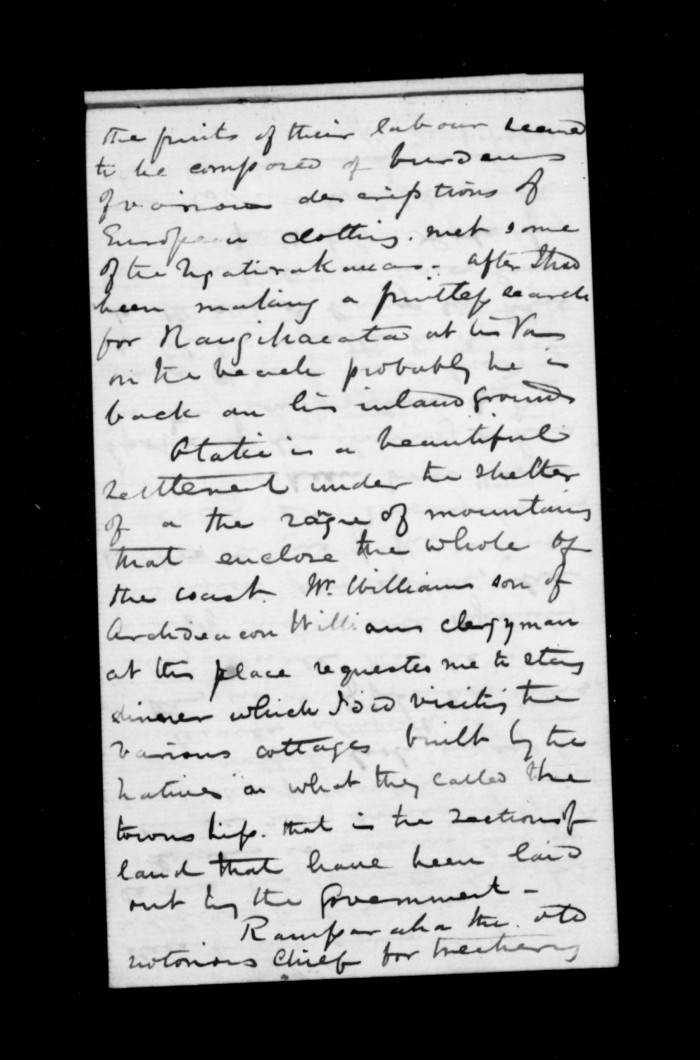 the fruits of their labour seemed
to be composed of burdens
of various descriptions of
European clothing. met some
of the Ngatiraukauas. after I had
been making a fruitless search
for Rangihaeata at his Pa
on the beach probably he is
back on his inland grounds
Otaki is a beautiful
settlement under the shelter
of a the range of mountains
that enclose the whole of
the coast. Mr. Williams son of
Archdeacon Williams clergyman
at this place requested me to stay
dinner which I did visiting the
various cottages built by the
natives on what they called the
township. that is the sections of
land that have been laid
out by the Government -
Rauparaha the old
notorious Chief for treachery